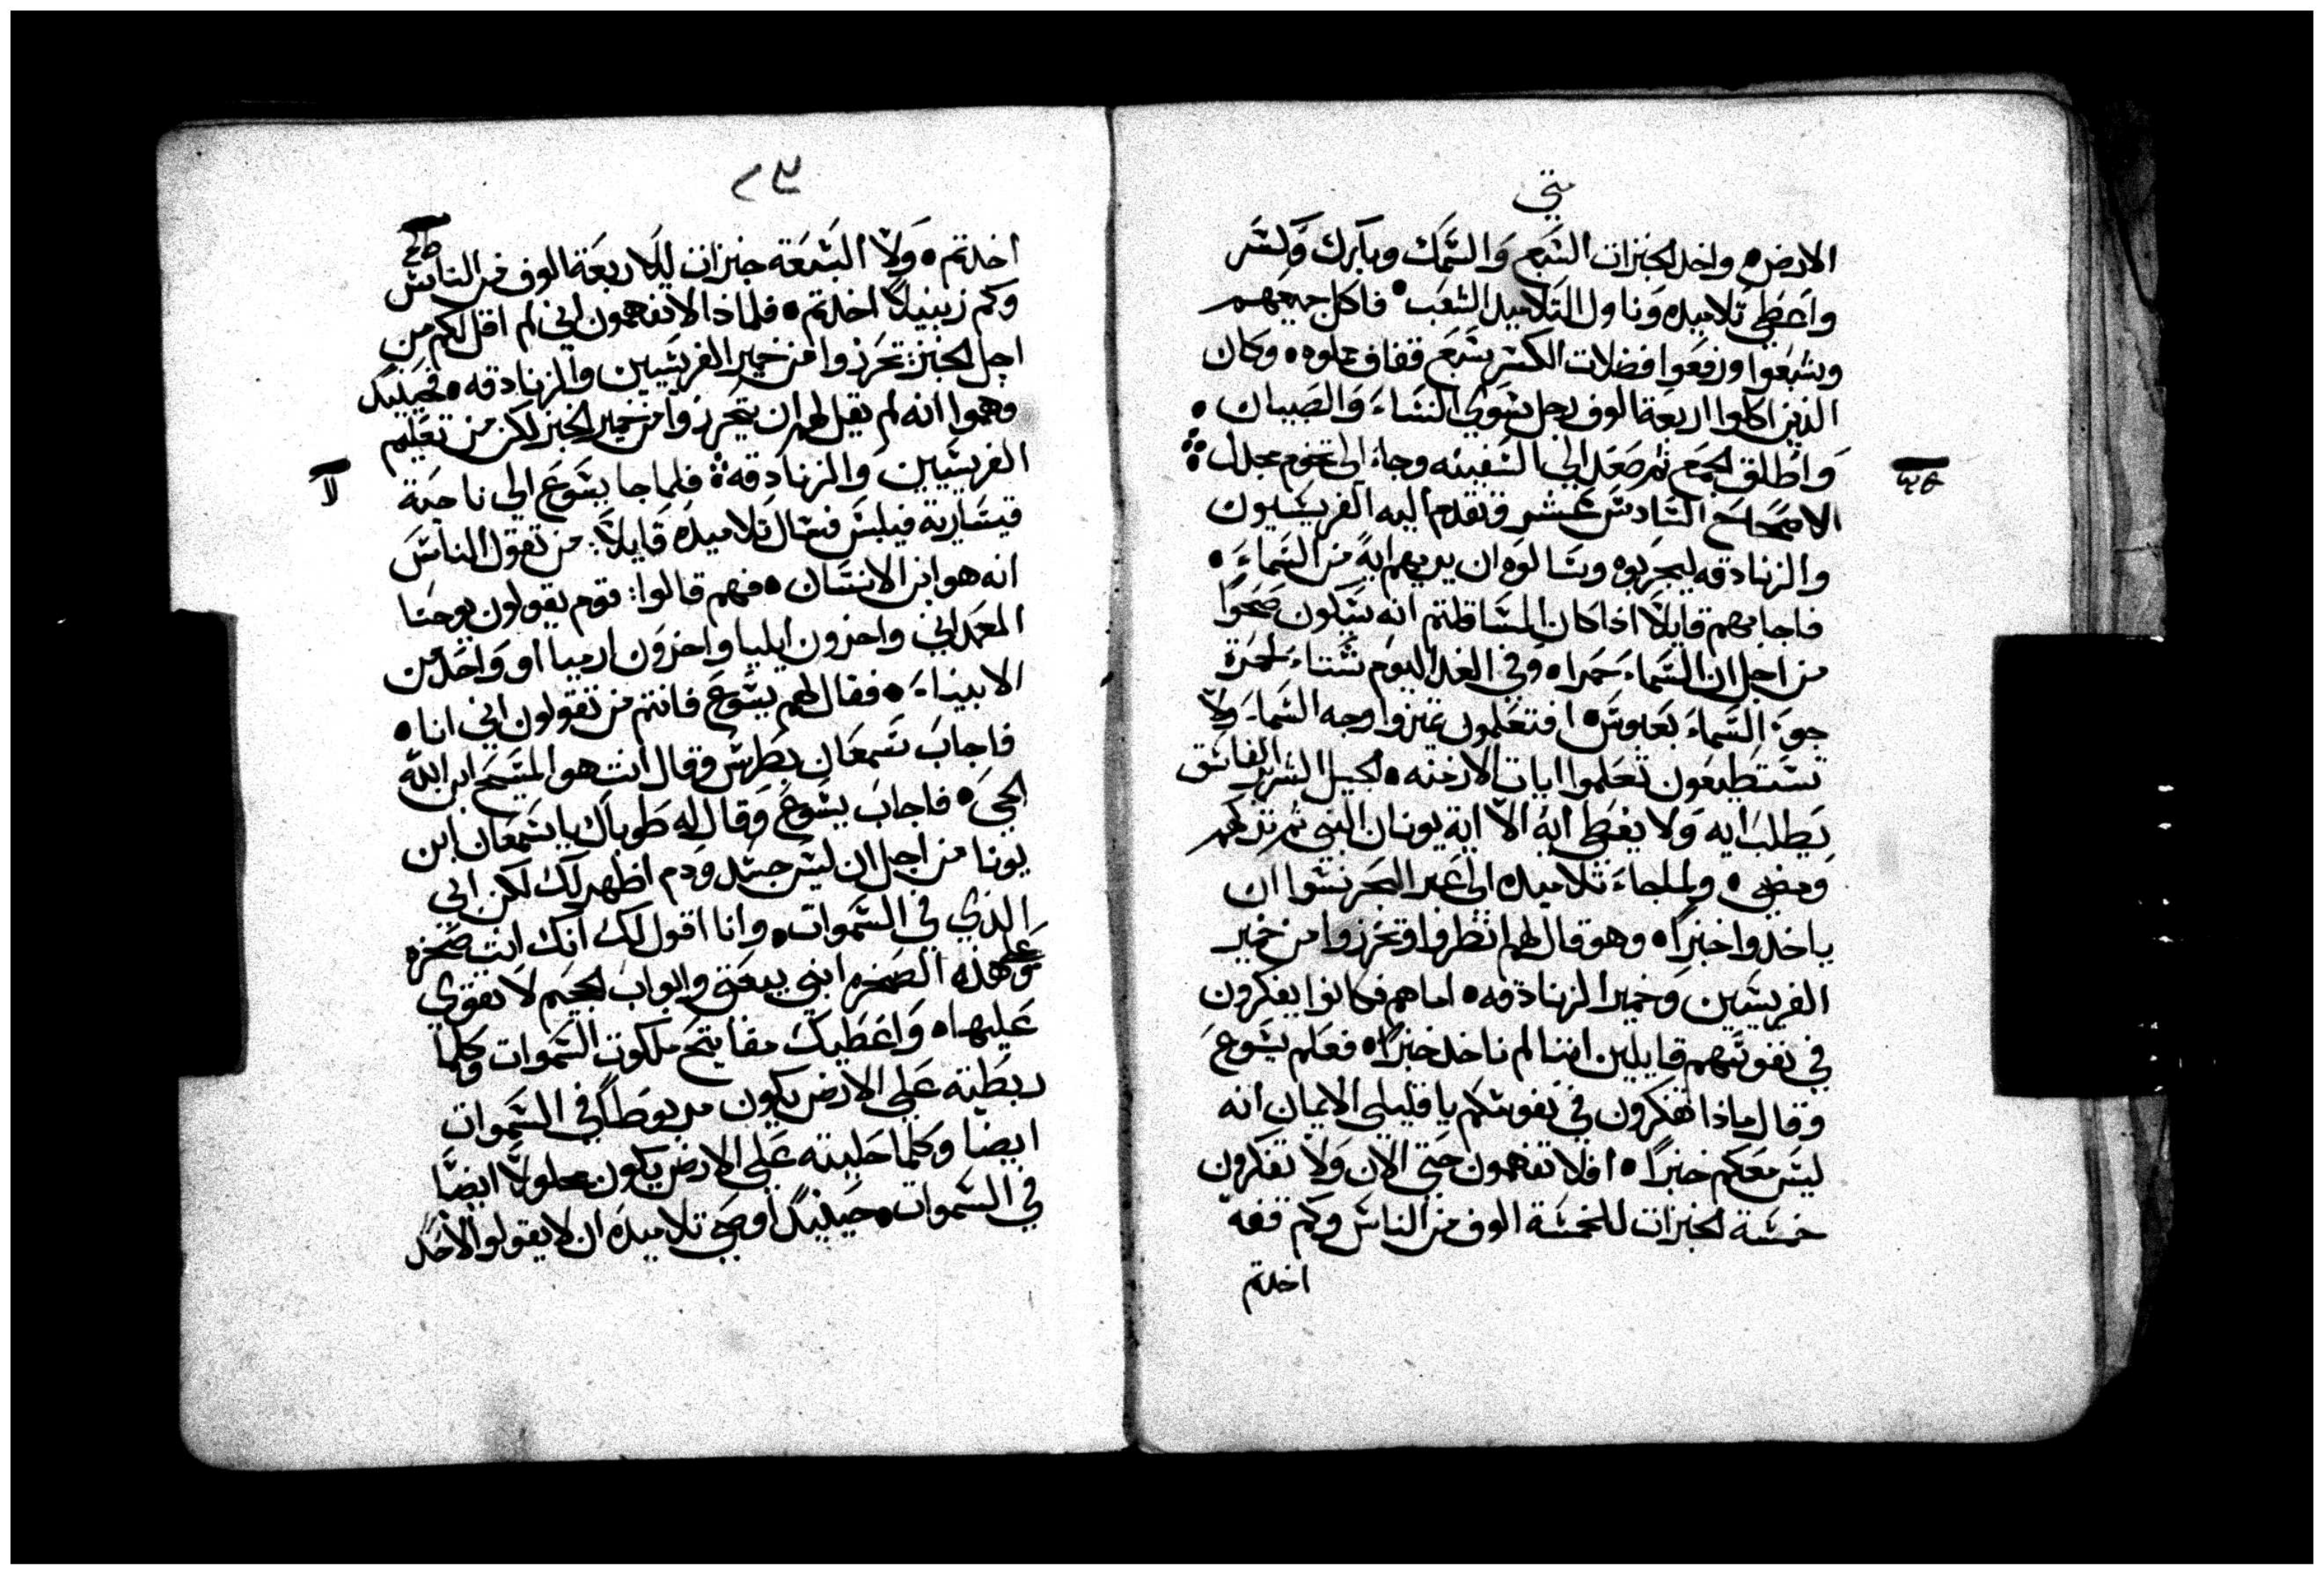 متى
الارض ٠ واخد الخبزات السبع والسمك وبارك وكسر
واعطي تلاميده وناول التلاميد الشعب ٠ فاكل جميعهم
وشبعوا ورفعوا فضلات الكسر سبع قفاف مملوه ٠ وكان
الذين اكلوا اربعة الوف رجل سوي النساء والصبيان ٠
واطلق الجمع ثم صعد الي السفينه وجاء الى تخوم مجدل
الاصحاح السادس عشر فتقدم اليه الفريسيون
والزنادقه ليجربوه وسالوه ان يريهم اية من السماء ٠
فاجابهم قايلا اذا كان المسا قلتم انه سيكون صحوا
من اجل ان السماء حمراه وفي الغد اليوم شتاء لحمرة
جو السماء بعبوس ٠ افتعلمون تميزوا وجه السماء ولا
تستطيعون تعلموا ايات الازمنه ٠ الجيل الشرير الفاسق
يطلب ايه ولا يعطى اية الا اية يونان النبي ثم تركهم
ومضي ٠ ولما جاء تلاميده الي عبر البحر نسوا ان
ياخدوا خبزا ٠ وهو قال لهم انظروا وتحرزوا من خمير
الفريسين وخمير الزنادقه ٠ اما هم فكانوا يفكرون
في نفوسهم قايلين اننا لم ناخد خبزا ٠ فعلم يسوع
وقال ماذا تفكرون في نفوسكم يا قليلي الايمان انه
ليس معكم خبزا ٠ افلا تفهمون حتي الان ولا تفكرون
خمسة الخبزات للخمسة الوف من الناس وكم قفه
اخدتم
اخدتم ٠ ولا السبعة خبزات للاربعة الوف من الناس
وكم زنبيلا اخدتم ٠ فلماذا لا تفهمون اني لم اقل لكم من
اجل الخبز تحرزوا من خمير الفريسيين والزنادقه ٠ فحينيد
فهموا انه لم يقل لهم ان يتحرزوا من خمير الخبز لكن من تعليم
الفريسيين والزنادقه فلما جا يسوع الى ناحية
لا
قيسارية فيلبس فسال تلاميده قايلا: من تقول الناس
انه هو ابن الانسان ٠ فهم قالوا: قوم يقولون يوحنا
المعمداني واخرون ايليا واخرون ارميا او واحد من
الانبياء ٠ فقال لهم يسوع فانتم من تقولون اني انا ٠
فاجاب سمعان بطرس وقال انت هو المسيح ابن الله
الحي ٠ فاجاب يسوع وقال له طوباك يا سمعان ابن
يونا من اجل ان ليس جسد ودم اظهر لك لكن ابي
الذي في السموات ٠ وانا اقول لك انك انت صخره
وعلى هذه الصخره ابني بيعتي وابواب الجحيم لا تقوي
عليها ٠ واعطيك مفاتيح ملكوت السموات وكلما
ربطته علي الارض يكون مربوطا في السموات
ايضا وكلما حليته علي الارض يكون محلولا ايضا
في السموات ٠ حينيد اوصي تلاميده ان لا يقولوا لاحد